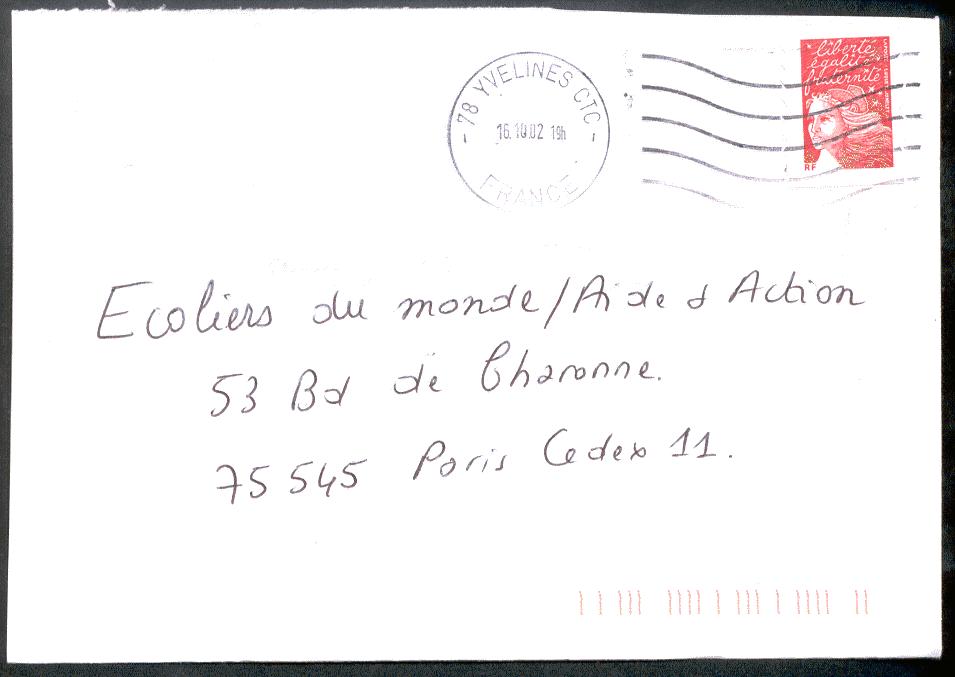 78 YVELINES CTC
16.10.02 19h
FRANCE
liberté
égalité
fraternité
RF
Ecoliers du monde/Aide d Action
53 Bd de Charonne.
75 545 Paris Cedex 11.